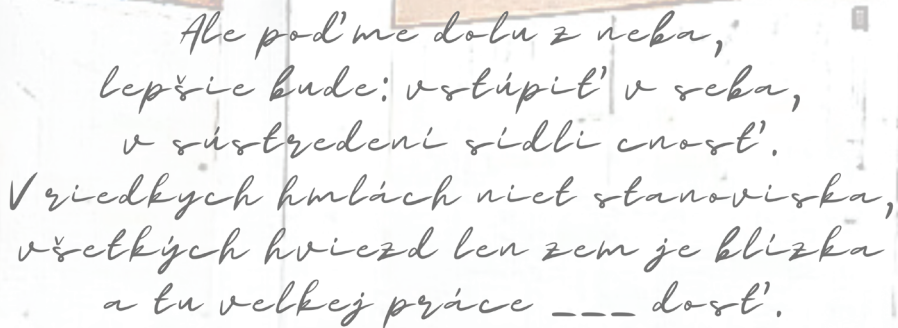 Ale poďme dolu z neba,
lepšie bude: vstúpiť v seba,
v sústredení sídli cnosť.
V riedkych hmlách niet stanoviska,
všetkých hviezd len zem je blízka
a tu velkej práce ___ dosť.